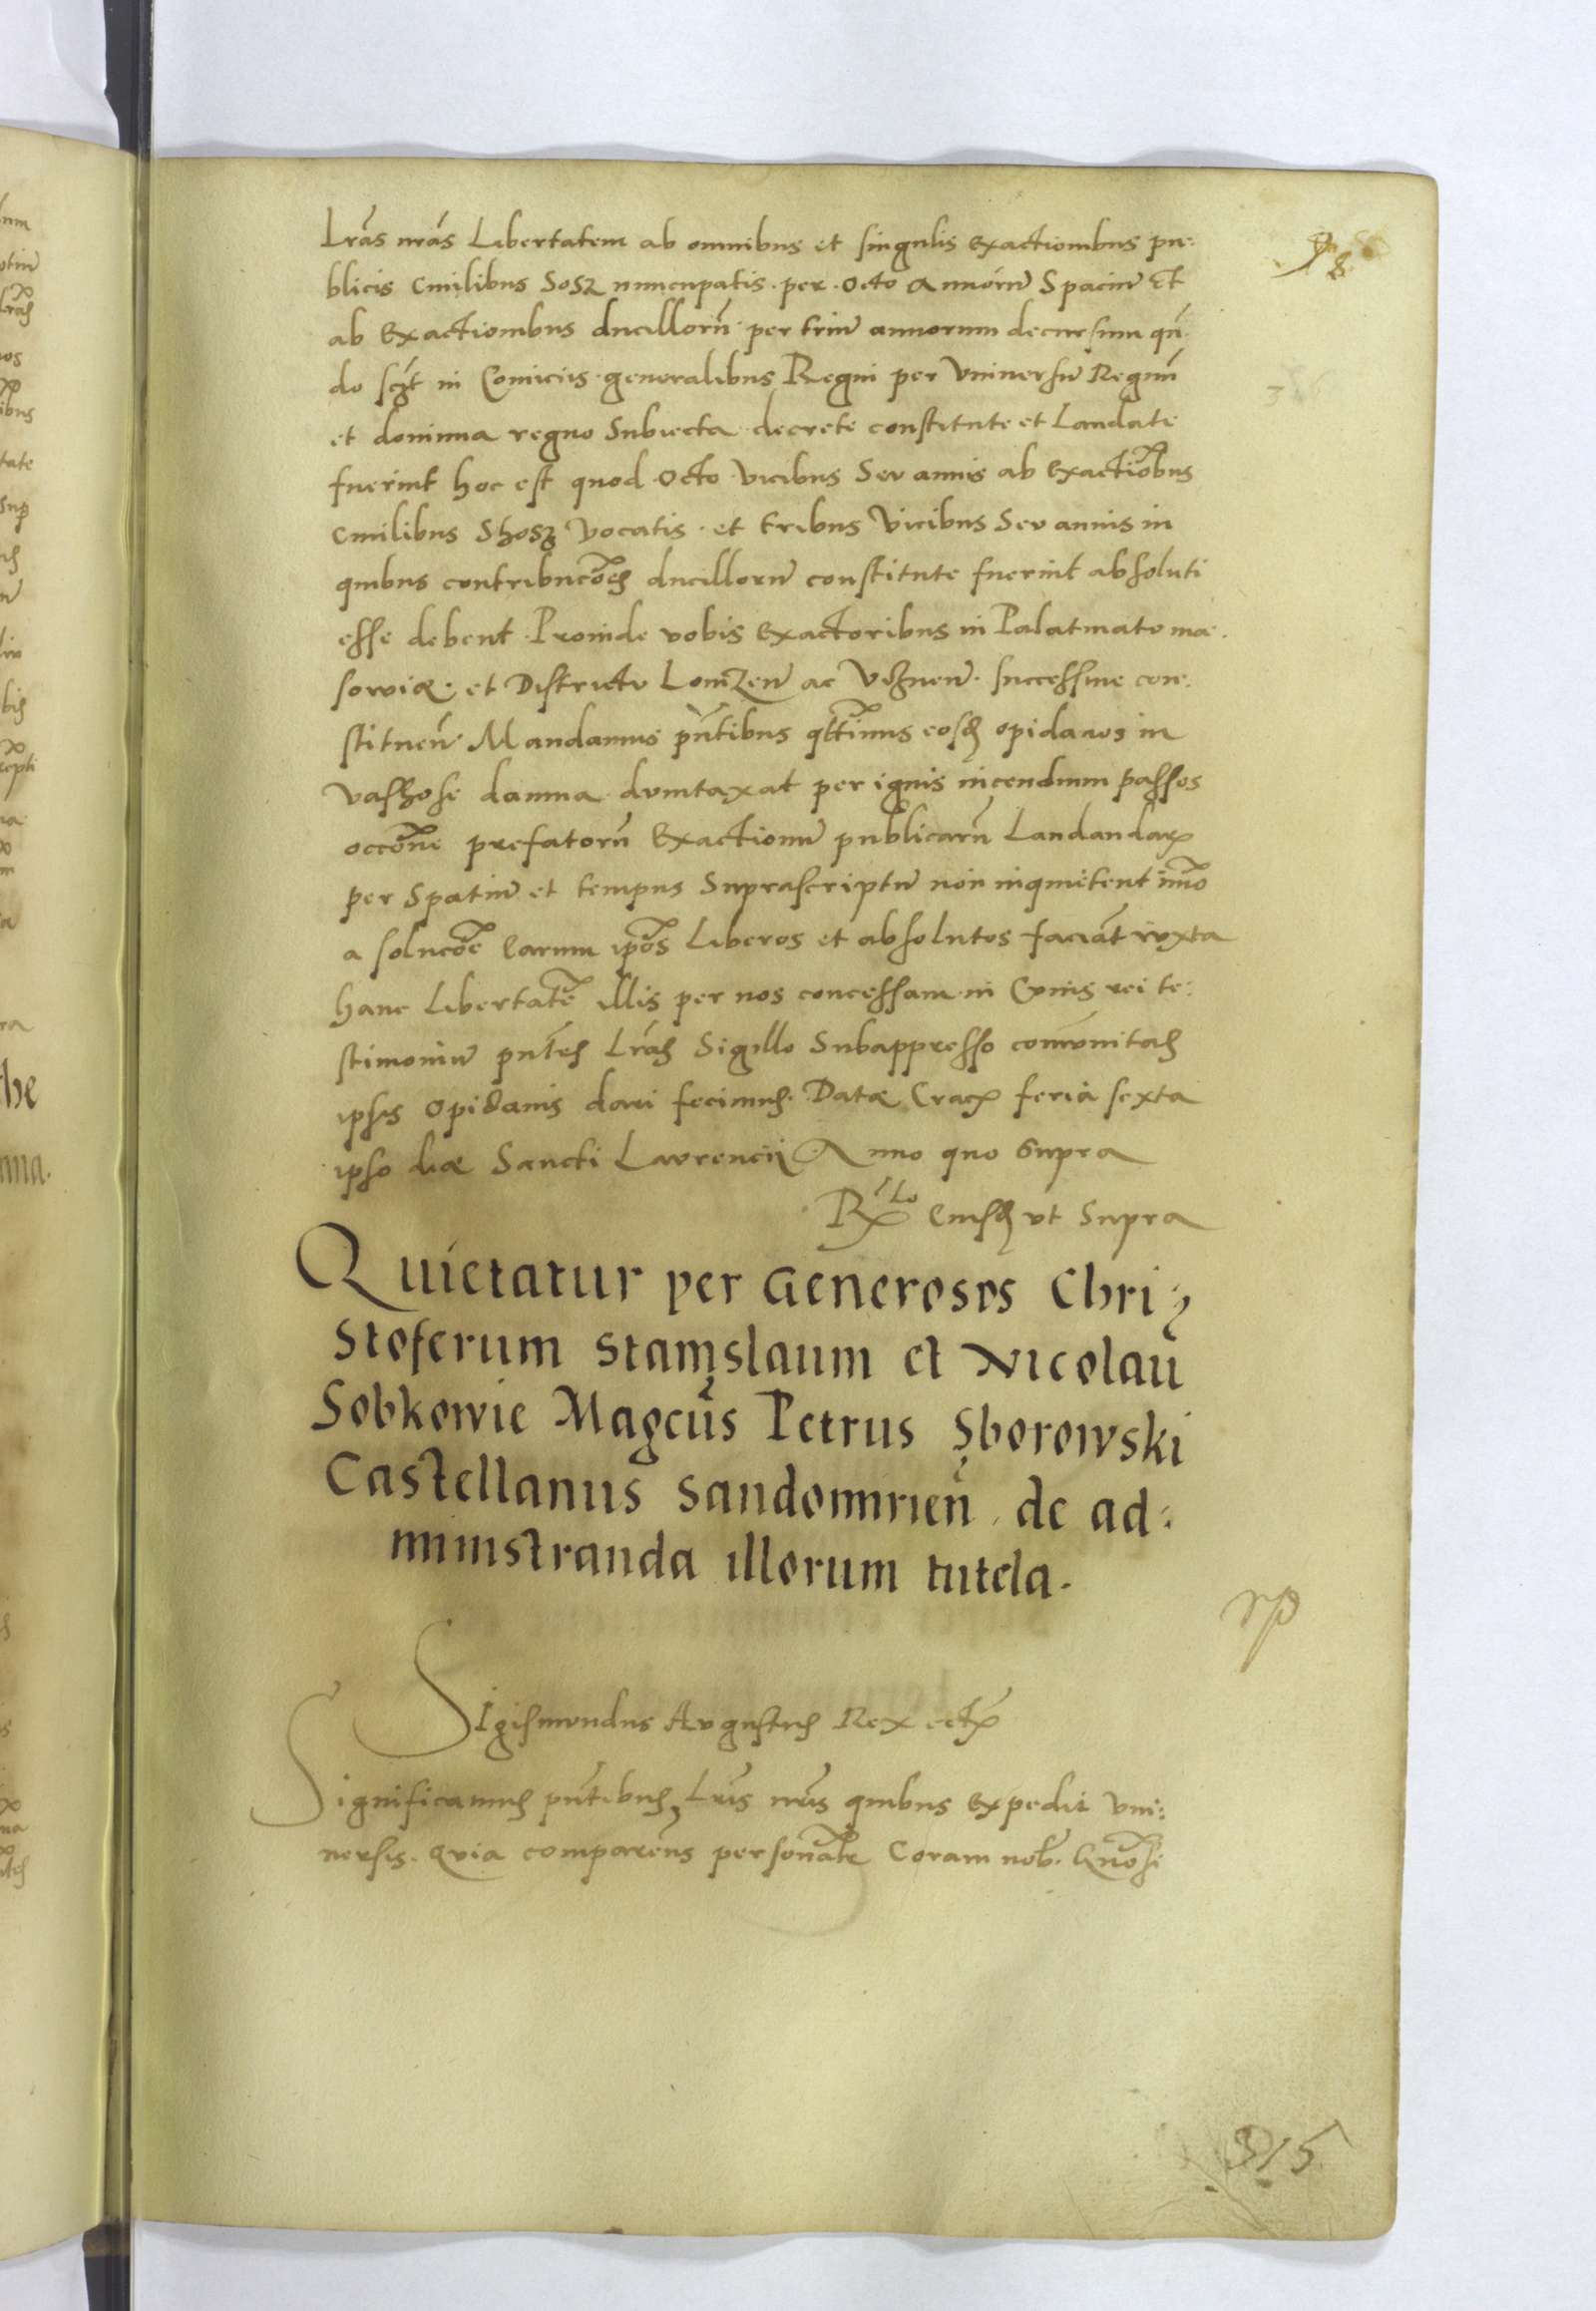 Lrãs nrãs Libertatem ab omnibus et singulis exactionibus pu:
blicis Ciuilibus Sosz nuncupatis per Octo Annorũ Spaciũ Et
ab Exactionibus ducillorũ per triũ annorum decursum qñ
do scz̃t in Comiciis generalibus Regni per Vniuersũ Regnũ
et dominia regno Subiecta decrete constitute et Laudate
fuerint hoc est quod Octo Vicibus Seu annis ab Exactiõbus
Ciuilibus Shosz vocatis et tribus Vicibus Seu annis in
quibus contribucões ducillorũ constitute fuerint absoluti
esse debent Proinde vobis Exactoribus in Palatinatu Ma
souiæ et Districtu Lomzeñ ac Vizneñ successiue con:
stitueñ Mandamus pñtibus qttinus eosd opidanos in
Vashose damna dumtaxat per ignis incendium passos
occõne prefatorũ Exactionũ publicarũ Laudandarꝝ
per Spatiũ et tempus Suprascriptũ non inquietent imo
a solucõe Earum ipõs Liberos et absolutos faciãt iuxta
hanc Libertatẽ illis per nos concessam in Cuius rei te:
stimoniũ pñtes Lrãs Sigillo Subappresso comunitas
ipsis Opidanis dari fecimus Datæ Cracꝝ feria sexta
ipso die Sancti Laurencij Anno quo Supra
Rlo Eiusd vt Supra
Quietatur per Generosos Chri
Stoferum Stanislaum et Nicolaũ
Sobkowie Magcũs Petrus Sborowski
Castellanus Sandomirieñ de ad:
ministranda illorum tutela.
Sigismundus Augustus Rex ectꝝ
Significamus pñtibus Lris nris quibus Expedit Vni:
uersis. Quia comparens personalr Coram nob. Gnõsi
315